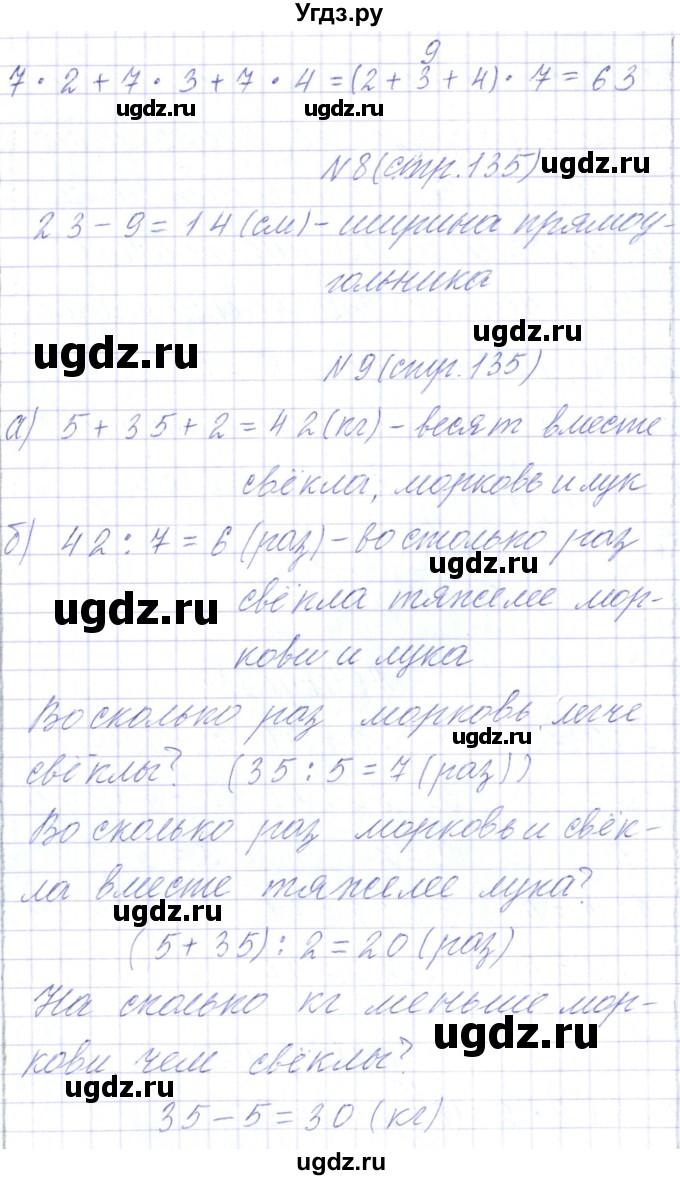 Угдз.ру
9
7 · 2 + 7 · 3 + 7 · 4 = (2 + 3 + 4) · 7 = 63
ugdz.ru ugdz.ru
№8 (стр. 135) ugdz.ru
23 - 9 = 14 (см) - ширина прямоу-
гольника
ugdz.ru
№9 (стр. 135)
а) 5 + 35 + 2 = 42 (кг) - весят вместе
свёкла, морковь и лук
б) 42 : 7 = 6 (раз) - во столько раз
ugdz.ru
свёкла тяжелее мор-
ugdz.ru
кови и лука
Во сколько раз морковь легче
ugdz.ru
свёклы? (35 : 5 = 7 (раз))
Во сколько раз морковь и свёк-
ла вместе тяжелее лука?
ugdz.ru
(5 + 35) : 2 = 20 (раз)
На сколько кг меньше мор-
ugdz.ru
кови чем свёклы?
ugdz.ru
35 - 5 = 30 (кг)
ugdz.ru